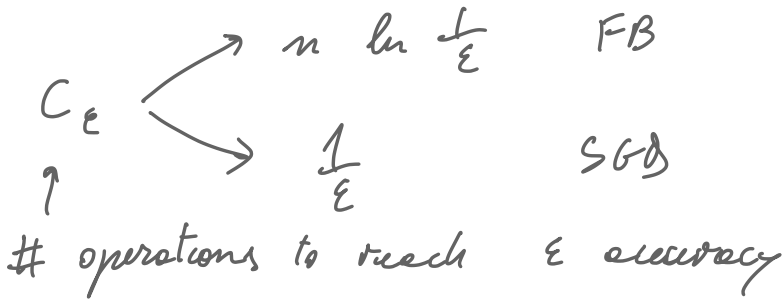 n ln 1/ε FB
C_ε
1/ε SGD
↑
# operations to reach ε accuracy